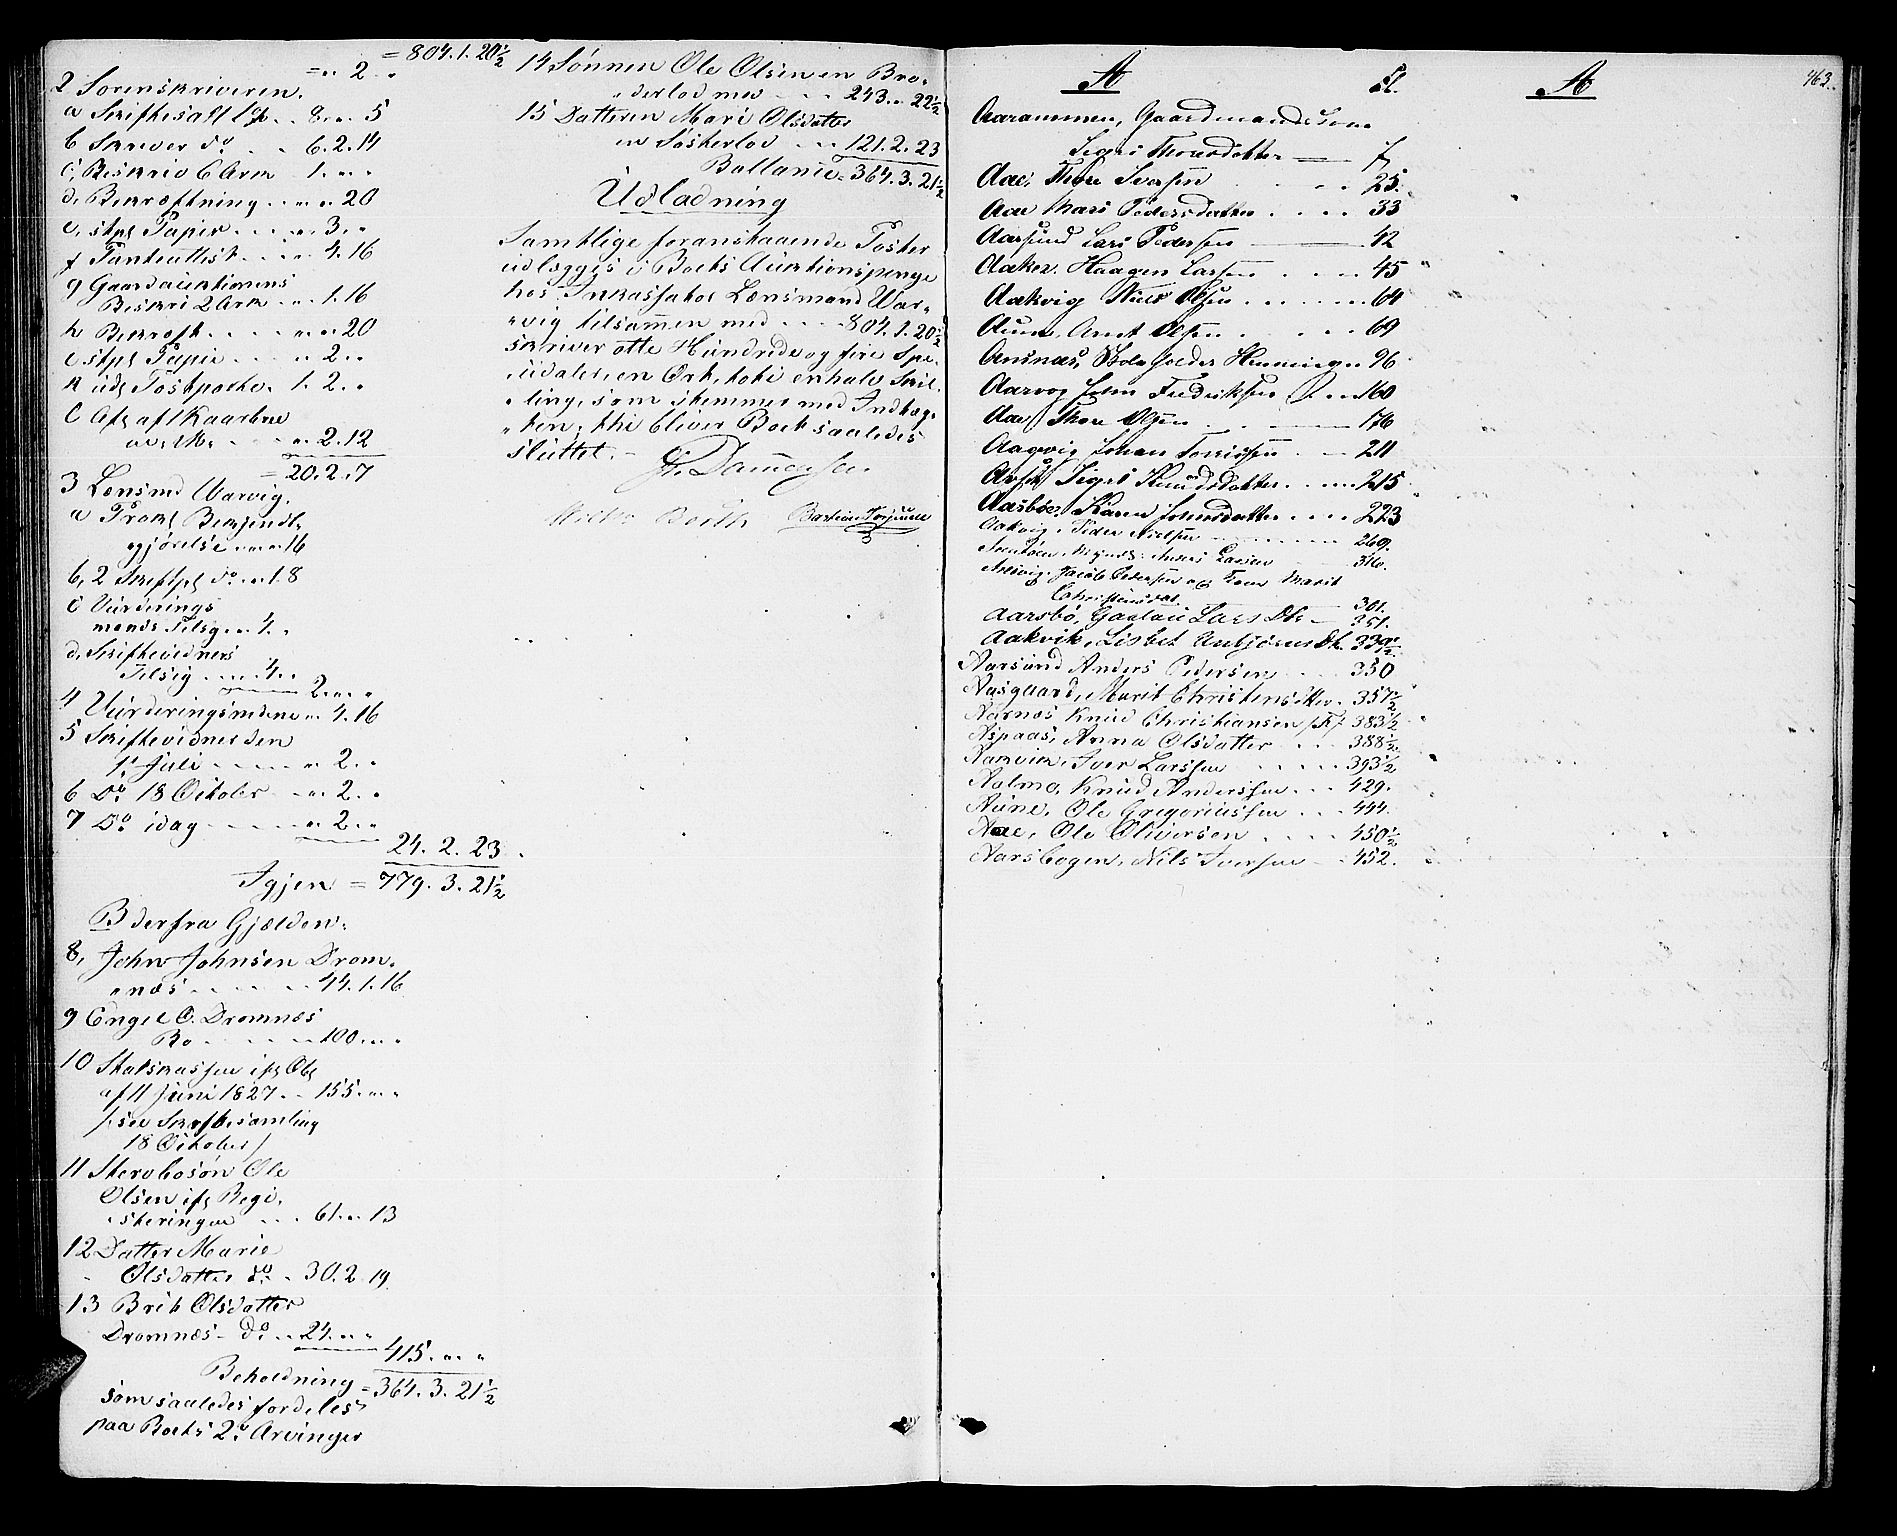 = 804. 1. 20½
= „ 2 „
2 Sorenskriveren.
a Skiftesalt 1 pc. . 8 „ 5
b Skriver do . . 6. 2. 14
c, Beskriv 6 Ark 1. „ „
d, Bekræftning . . „ „ 20
e, stpl Papir . . . „ 3. „
f Panteattest . . . „ 4. 16
g Gaardauktionens
Beskri 2 Ark . . „ 1. 16
h Bekræft . . . . „ „ 20
i stpl Papir . . . „ 2 „
k udl Postporto. 1. 2. „
„ 2. 12
= 20. 2. 7
3 Lensmd Warvig.
a Prokl Bekjendt,
gjørelse „ „ 16
b, 2 Skiftspl do . „ 1. 8
c Vurderings
mænds Tilsig . „ 4. „
d, Skiftevidners
Tilsig . . „ 4. „
2. „ „
4 Vurderingsmdene „ 4. 16
5 Skiftevidner den
1. Juli . . . . „ 2. „
6 Do. 18 October . . „ 2. „
7 Do. idag . . . . „ 2. „
24. 2. 23
Igjen = 779. 3. 21½
B derfra Gjælden:
8, John Johnsen Drom„
„næs . . . . . 44. 1. 16
9 Engel O. Dromnæs
Bo . . . . 100. „ „
10 Statskassen ifl Obl
af 11 Juni 1827 . . 155. „ „
/: see Skiftesamling
18 October /
11 Stervbosøn Ole
Olsen ifl Regi„
„steringen . . . 61. „ 13
12 Datter Marie
Olsdatter do. „ 30. 2. 19
13 Brit Olsdatter
Dromnæs – do „ 24. „ „
415. „ „
Beholdning = 364. 3. 21½
som saaledes fordeles
paa Boets 2de Arvinger
14 Sønnen Ole Olsen en Bro„
„derlod med . . . 243. „ 22½
15 Datteren Mari Olsdatter
en Søsterlod . . . 121. 2. 23
Ballance = 364. 3. 21½
Udladning
Samtlige foranstaaende Poster
udlægges i Boets Auktionspenge
hos Inkassator Lensmand War„
„vig tilsammen med . . . 804. 1. 20½
skriver otte Hundrede og fire Spe„
„cidaler, en Ort, toti en halv Skil„
„ling, som stemmer med Indtæg„
„ten; thi bliver Boet saaledes
sluttet. –
A Fl. A 463.
Aarammen, Gaardmandskone
Sigri Thoresdatter — 1
Aae, Thore Iversen . . . 25.
Aae Mari Pedersdatter . . . . 33
Aarsund Lars Pedersen — 42
Aaker, Haagen Larsen . . . . 45
Aakvig Niels Olsen . . . . 64
Aune, Arnt Olsen . . . . 69
Henning „ 96
Aarvog John Fredriksen . . 160
Aae, Thore Olsen . . . 176
Aagvig Johan . . – 211
Sigri Knudsdatter . . . . 215
Aasbøe, Karen Johnsdatter . . . . 223
Aakvig, Peder Nielsen . . . . 269.
Anders Larsen 316.
Aakvig, Jacob Pedersen og Kone Marit
Christensdat. 301.
Aarsbø, Lars Dtr – 351.
Aakvik, Lisbet Dtr. 339½
Aarsund Anders Pedersen . . . 350
Aasgaard, Marit Christensdtter . 357½
Aarnæs Knud Christiansen /F/. 383½
Aspaas, Anna Olsdatter . . . 388½
Aakvik, Iver Larssen . . . . 393½
Aalmo, Knud Anderssen . . . 429.
Aune, Ole Gregoriussen . . . 444.
Aae, Ole Oliversen . . . . 450½
Aarsbogen, Nils Iversen . . . 452.